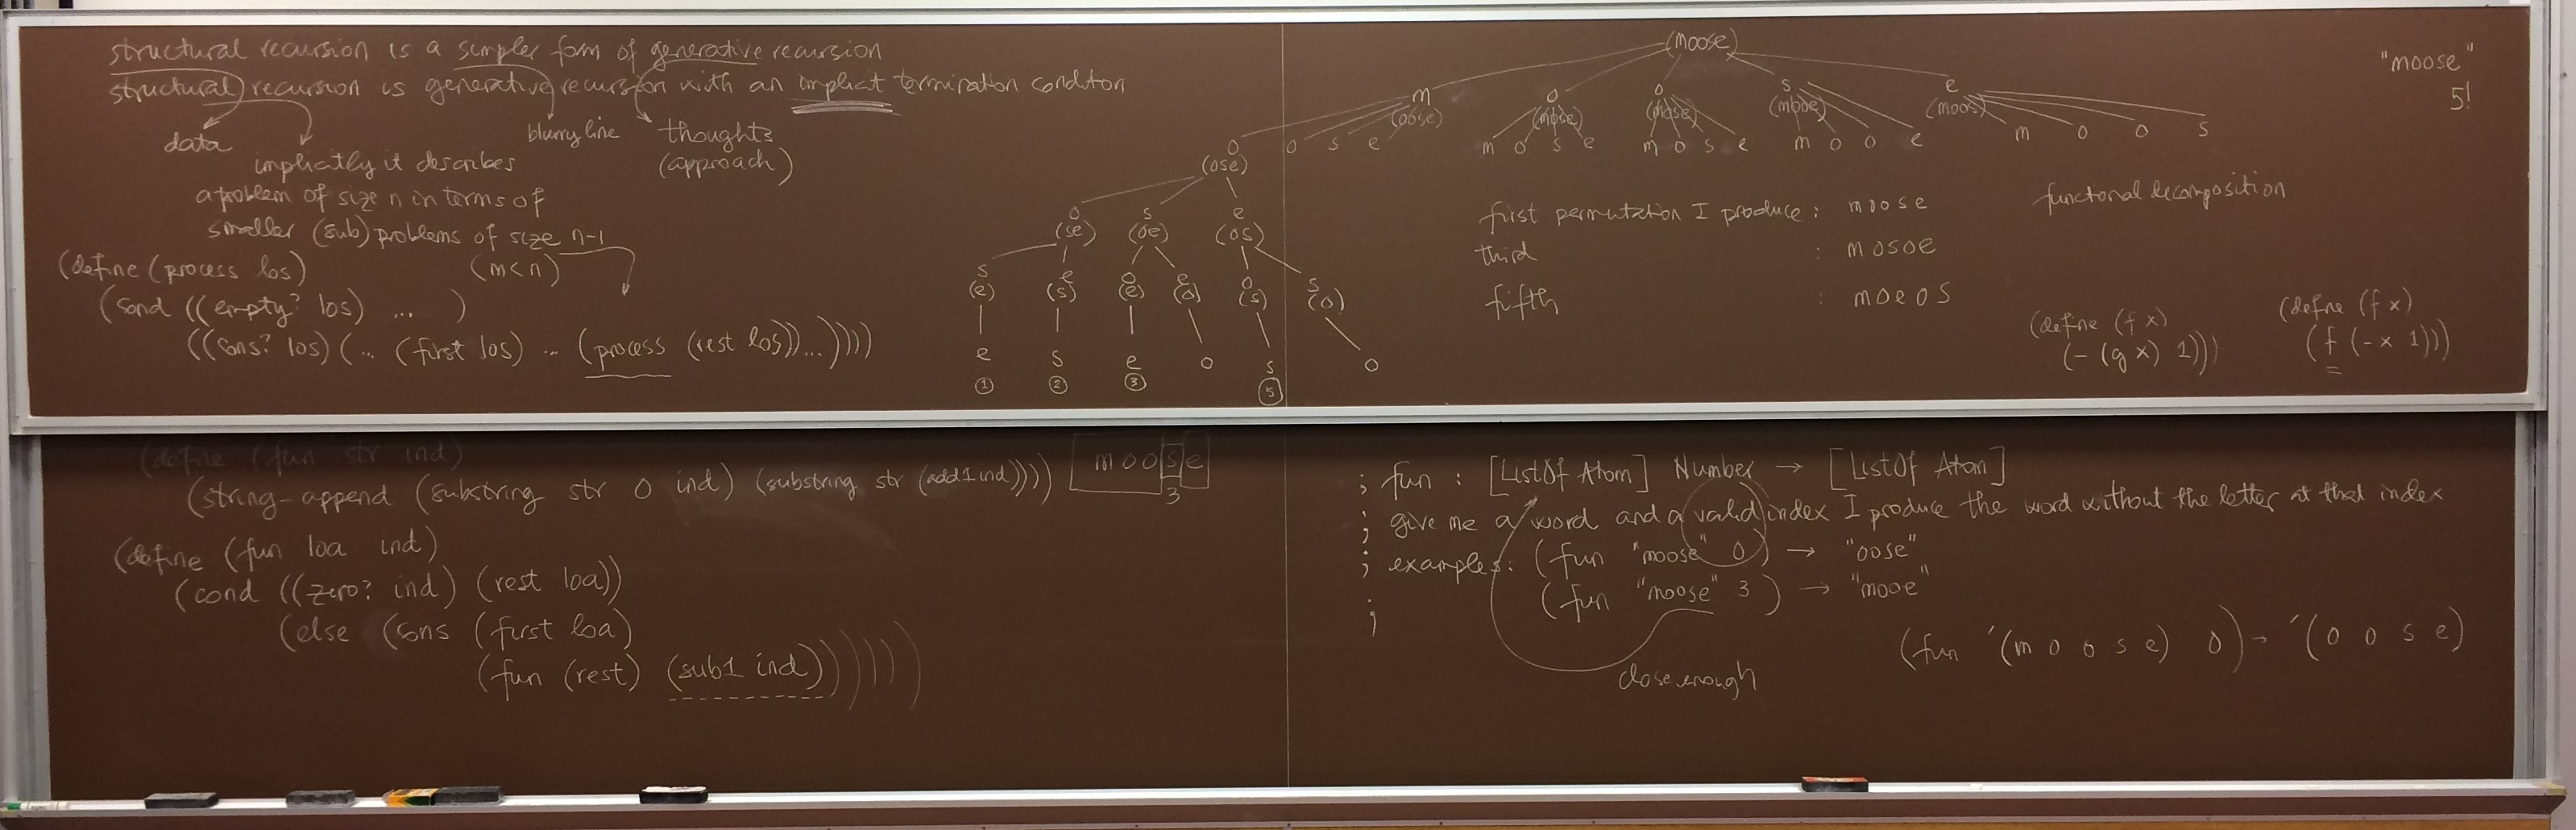 structural recursion is a simpler form of generative recursion
structural recursion is generative recursion with an implicit termination condition
data
implicitly it describes
a problem of size n in terms of
smaller (sub) problems of size n-1
(m<n)
blurry line
thoughts
(approach)
(define (process los)
(cond ((empty? los) ... )
((cons? los) (... (first los) ... (process (rest los))...))))
(moose)
m o o s e
(oose) (mose) (mose) (mooe) (moos)
o o s e m o s e m o s e m o o e m o o s
(ose)
o s e
(se) (oe) (os)
s e o e o s
(e) (s) (e) (o) (s) (o)
e s e o s o
① ② ③ ⑤
"moose"
5!
first permutation I produce : moose
third : mosoe
fifth : moeos
functional decomposition
(define (f x)
(- (g x) 1)))
(define (f x)
(f (- x 1)))
(define (fun str ind)
(string-append (substring str 0 ind) (substring str (add1 ind))))
moose
3
(define (fun loa ind)
(cond ((zero? ind) (rest loa))
(else (cons (first loa)
(fun (rest) (sub1 ind))))))
; fun : [ListOf Atom] Number → [ListOf Atom]
; give me a word and a valid index I produce the word without the letter at that index
; examples: (fun "moose" 0) → "oose"
(fun "moose" 3 ) → "mooe"
;
close enough
(fun '(m o o s e) 0) → '(o o s e)